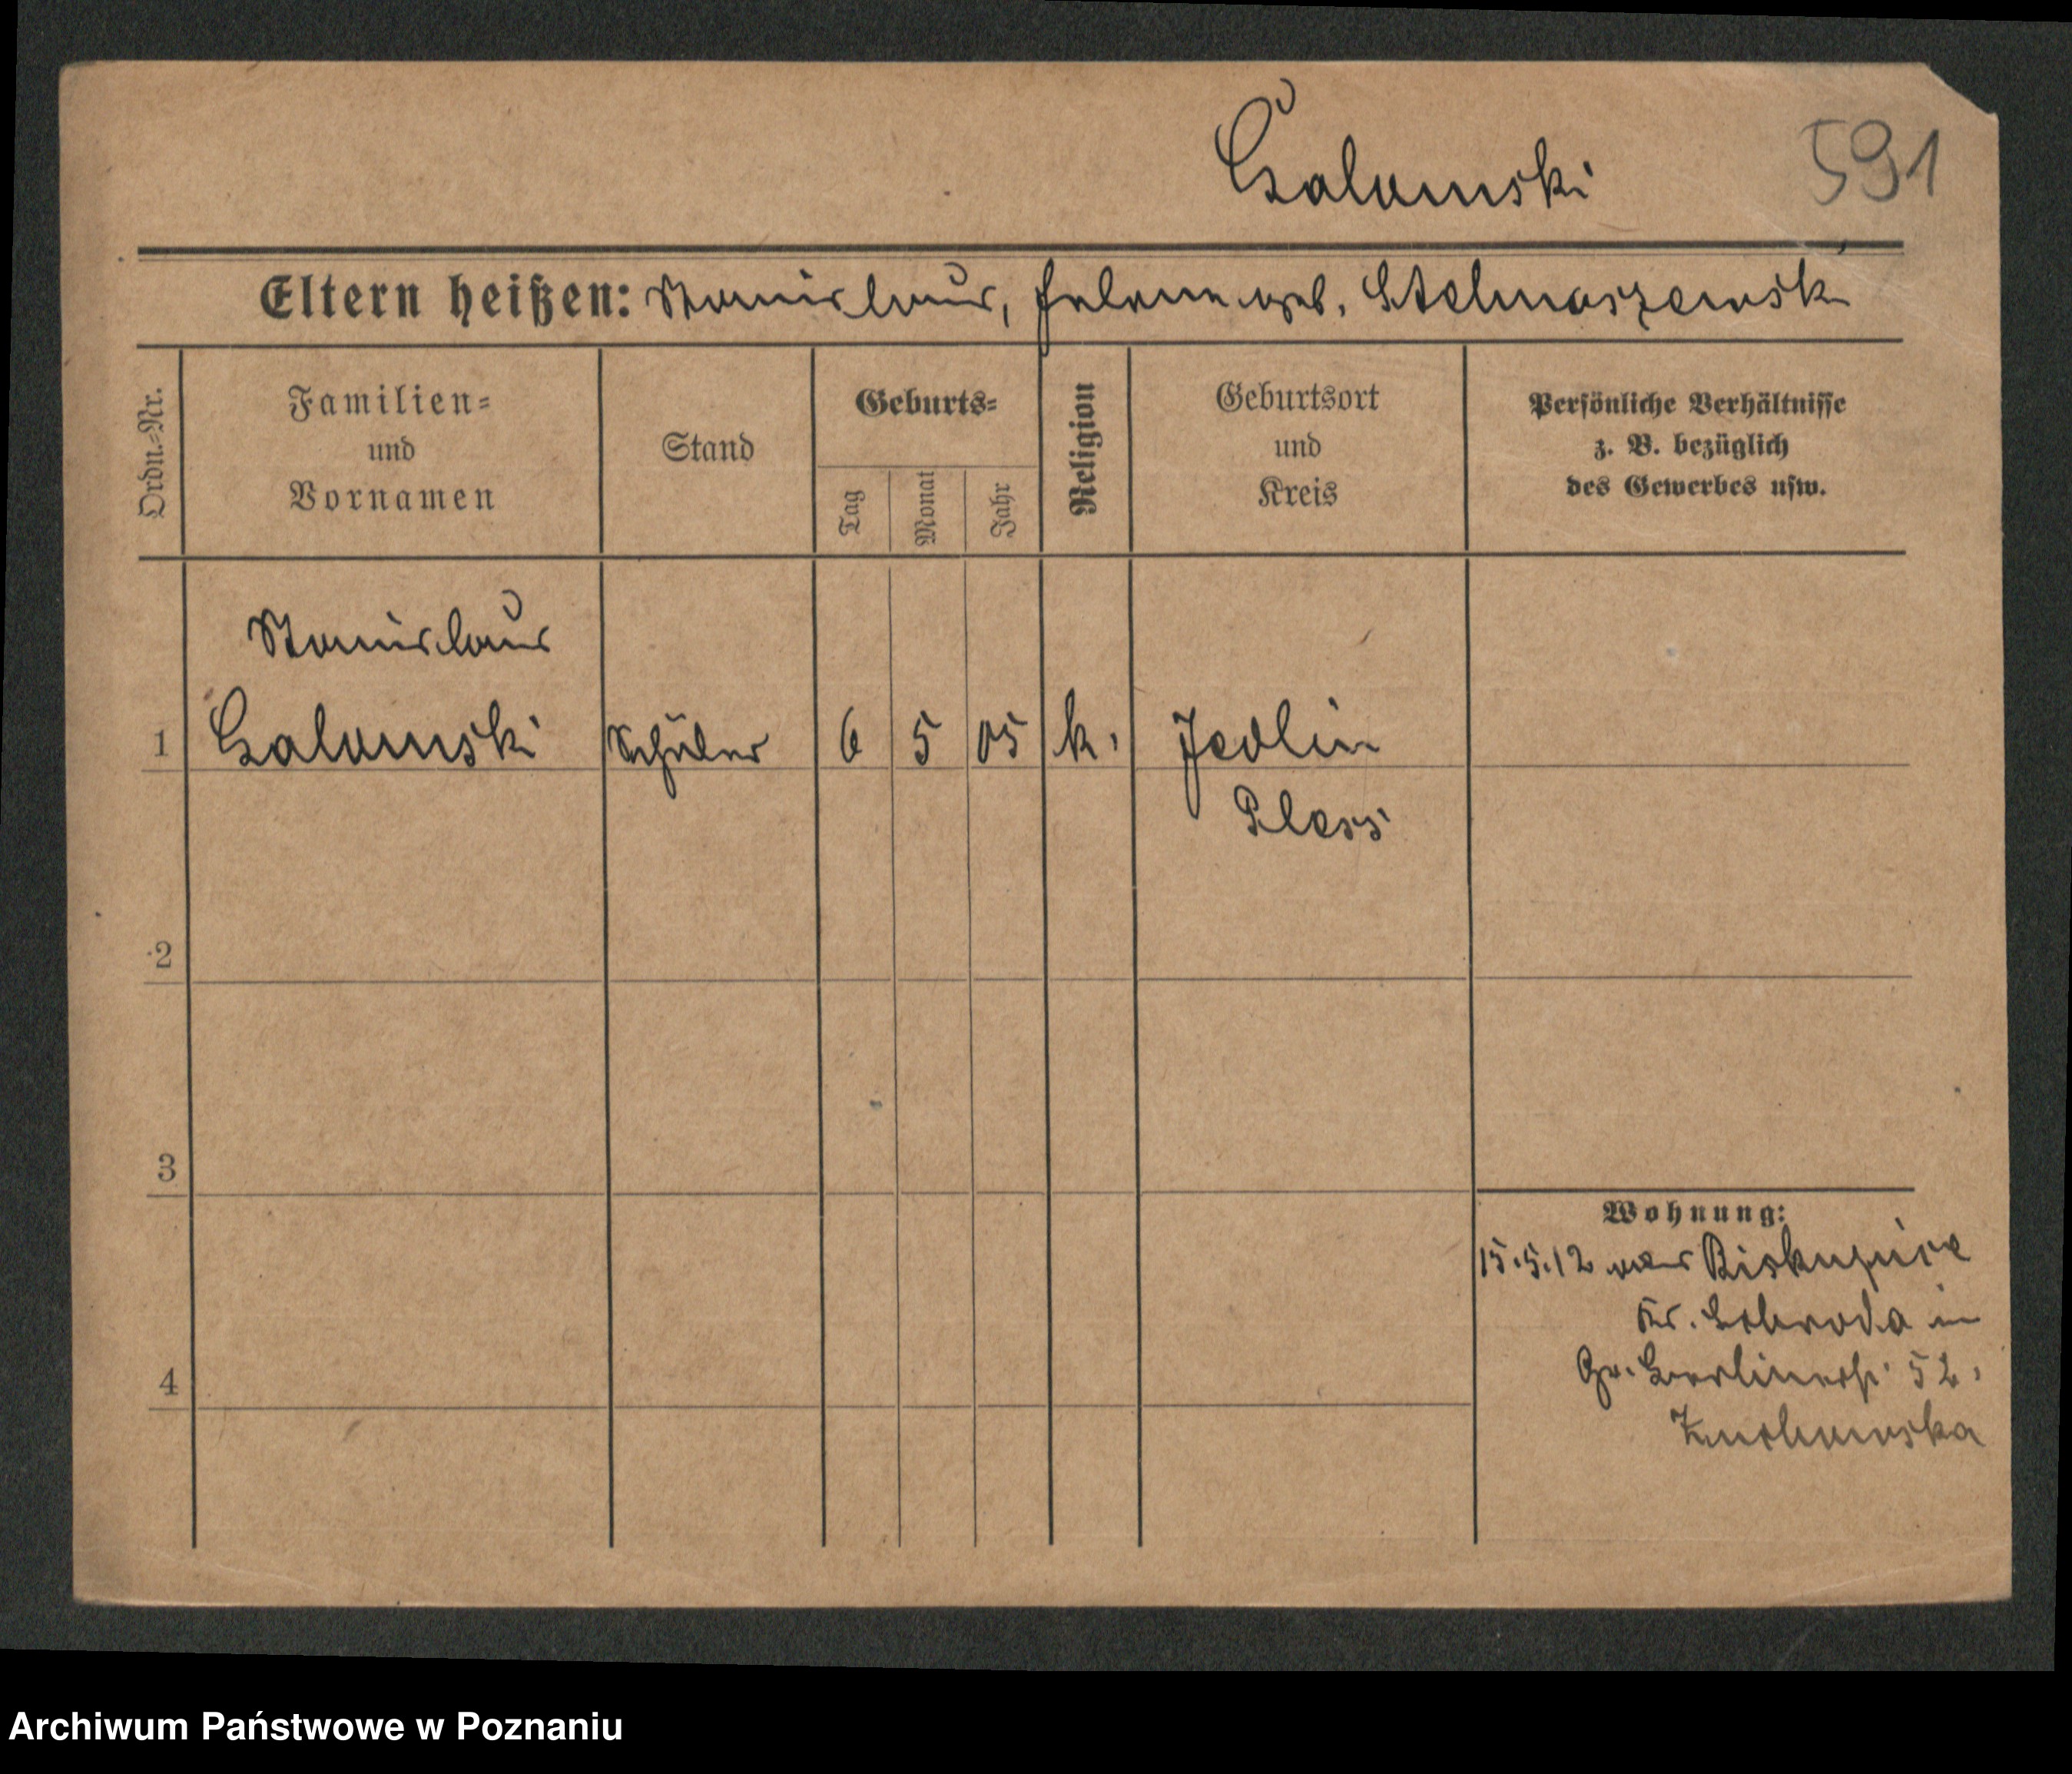 Galomski
591
Eltern heißen: Stanislaus, Helene geb. Stelmaszewsk
Ordn.-Nr.
Familien-
und
Vornamen
Stand
Geburts-
Tag
Monat
Jahr
Religion
Geburtsort
und
Kreis
Persönliche Verhältnisse
z. B. bezüglich
des Gewerbes usw.
Stanislaus
1 Schüler 6 5 05 k. Jedlin
Pless
2
3
4
Wohnung:
15.5.12 Biskupice
Kr. in
Gr. Berlinerstr. 52.
Archiwum Państwowe w Poznaniu